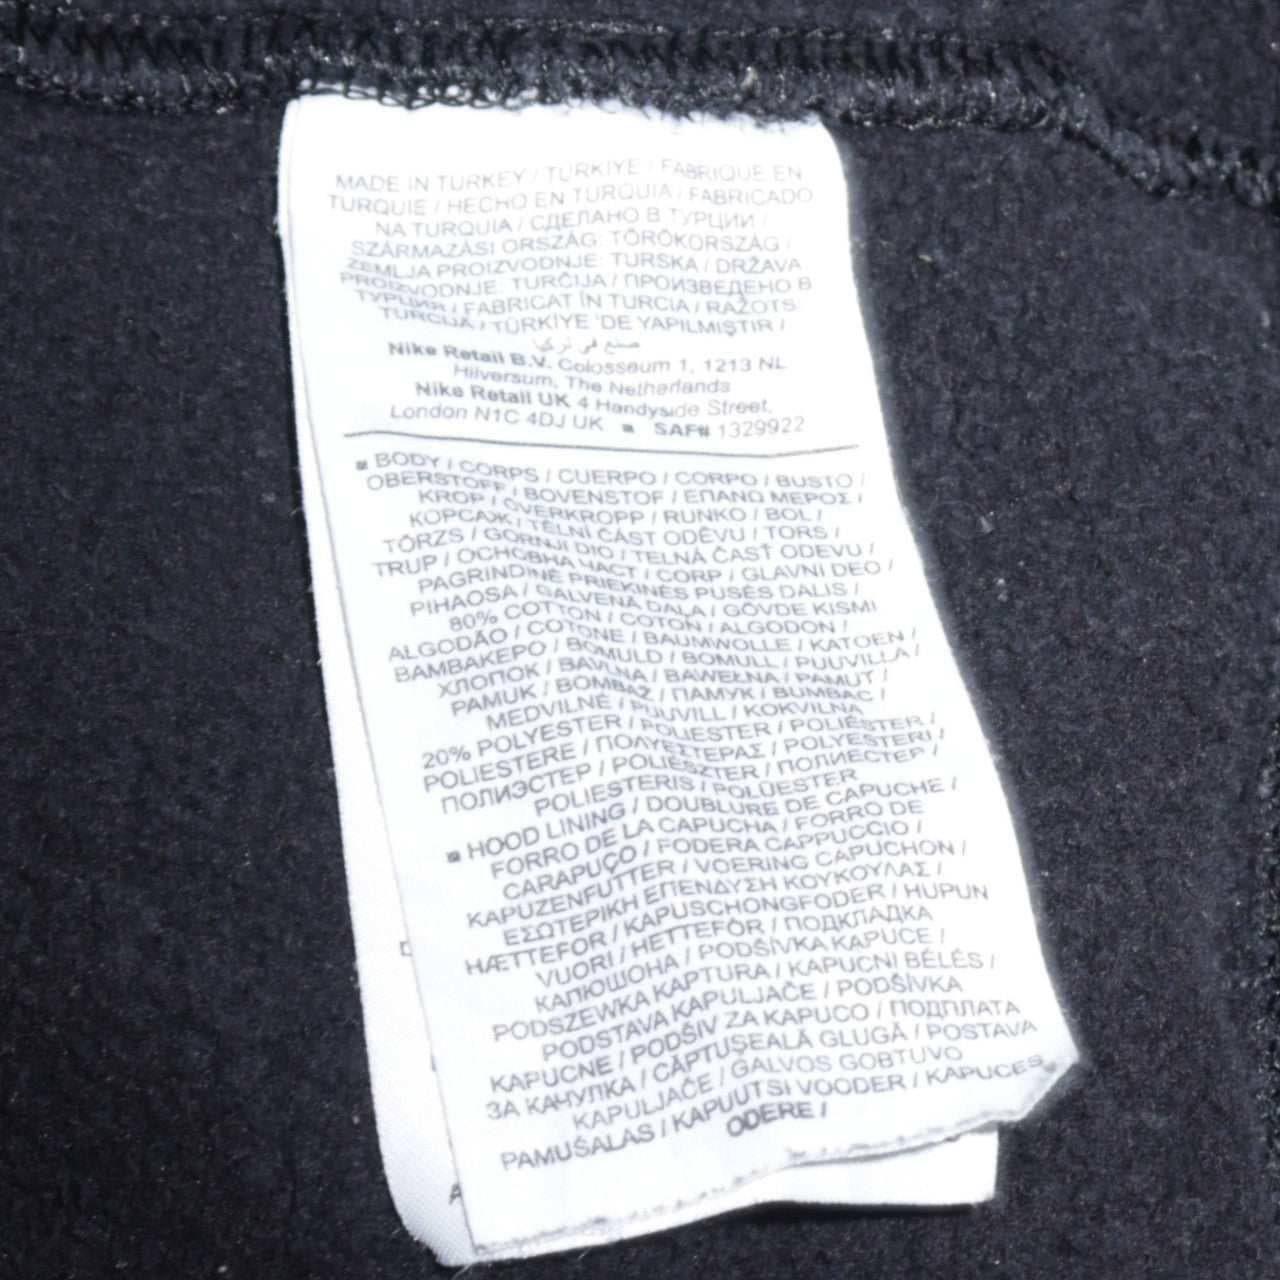 MADE IN TURKEY / TÜRKIYE / FABRIQUE EN
TURQUIE / HECHO EN TURQUIA / FABRICADO
NA TURQUIA / СДЕЛАНО В ТУРЦИИ /
SZÁRMAZÁSI ORSZÁG: TÖRÖKORSZÁG /
ZEMLJA PROIZVODNJE: TURSKA / DRŽAVA
PROIZVODNJE: TURČIJA / ПРОИЗВЕДЕНО В
ТУРЦИЯ / FABRICAT ÎN TURCIA / RAŽOTS:
TURCIJĀ / TÜRKİYE 'DE YAPILMIŞTIR /
صنع في تركيا
Nike Retail B.V. Colosseum 1, 1213 NL
Hilversum, The Netherlands
Nike Retail UK 4 Handyside Street,
London N1C 4DJ UK ■ SAF# 1329922
■ BODY / CORPS / CUERPO / CORPO / BUSTO /
OBERSTOFF / BOVENSTOF / ΕΠΑΝΩ ΜΕΡΟΣ /
KROP / OVERKROPP / RUNKO / BOL /
КОРСАЖ / TĚLNÍ ČÁST ODĚVU / TORS /
TÖRZS / GORNJI DIO / TELNÁ ČASŤ ODEVU /
TRUP / ОСНОВНА ЧАСТ / CORP / GLAVNI DEO /
PAGRINDINĖ PRIEKINĖS PUSĖS DALIS /
PIHAOSA / GALVENĀ DAĻA / GÖVDE KISMI
80% COTTON / COTON / ALGODON /
ALGODÃO / COTONE / BAUMWOLLE / KATOEN /
ΒΑΜΒΑΚΕΡΟ / BOMULD / BOMULL / PUUVILLA /
ХЛОПОК / BAVLNA / BAWEŁNA / PAMUT /
PAMUK / BOMBAŽ / ПАМУК / BUMBAC /
MEDVILNĖ / PUUVILL / KOKVILNA
20% POLYESTER / POLIESTER / POLIÉSTER /
POLIESTERE / ΠΟΛΥΕΣΤΕΡΑΣ / POLYESTERI /
ПОЛИЭСТЕР / POLIÉSZTER / ПОЛИЕСТЕР /
POLIESTERIS / POLÜESTER
■ HOOD LINING / DOUBLURE DE CAPUCHE /
FORRO DE LA CAPUCHA / FORRO DE
CARAPUÇO / FODERA CAPPUCCIO /
KAPUZENFUTTER / VOERING CAPUCHON /
ΕΣΩΤΕΡΙΚΗ ΕΠΕΝΔΥΣΗ ΚΟΥΚΟΥΛΑΣ /
HÆTTEFOR / KAPUSCHONGFODER / HUPUN
VUORI / HETTEFÔR / ПОДКЛАДКА
КАПЮШОНА / PODŠÍVKA KAPUCE /
PODSZEWKA KAPTURA / KAPUCNI BÉLÉS /
PODSTAVA KAPULJAČE / PODŠÍVKA
KAPUCNE / PODŠIV ZA KAPUCO / ПОДПЛАТА
ЗА КАЧУЛКА / CĂPTUŞEALĂ GLUGĂ / POSTAVA
KAPULJAČE / GALVOS GOBTUVO
PAMUŠALAS / KAPUUTSI VOODER / KAPUCES
ODERE /